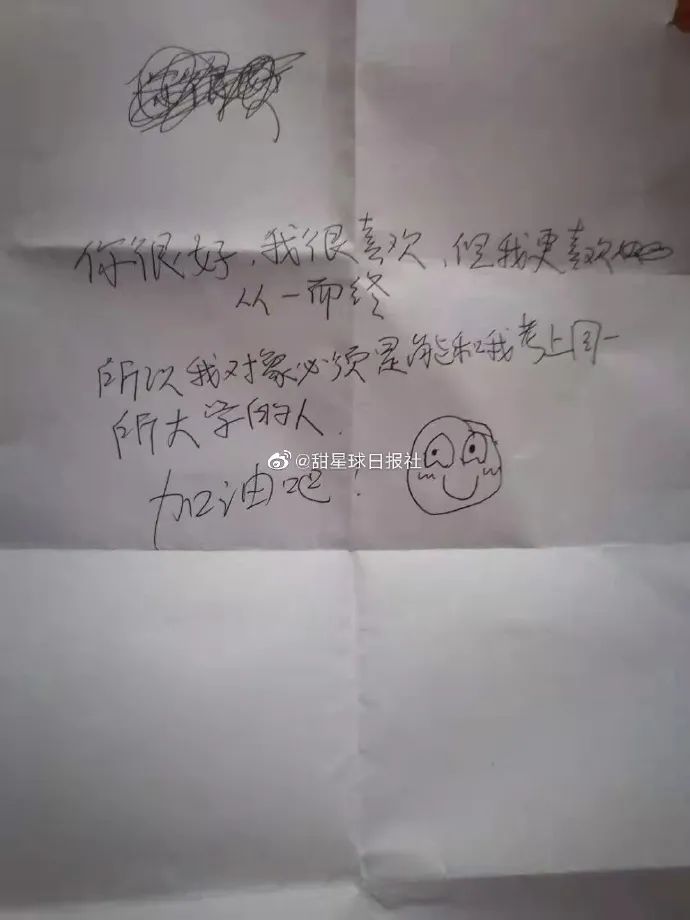 你很好，我很喜欢，但我更喜欢
从一而终
所以我对象必须是能和我考上同一
所大学的人.
加油吧！
@甜星球日报社